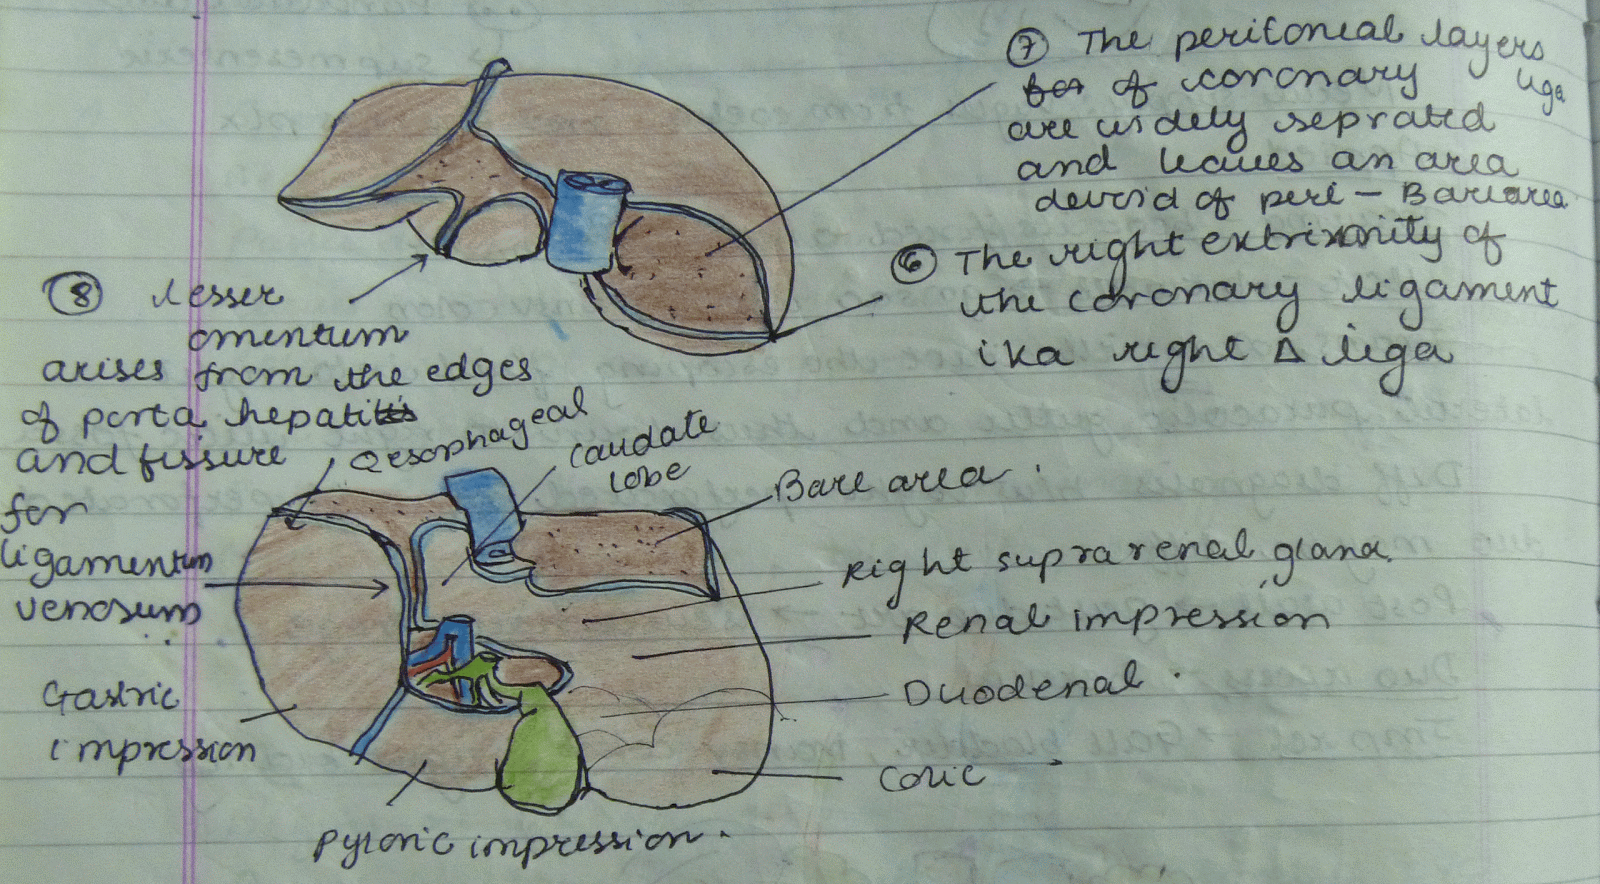 ⑦ The peritoneal layers
of coronary liga
are widely seprated
and leaves an area
devoid of peri - Bare area
⑥ The right extrimity of
the coronary ligament
ika right Δ liga
⑧ lesser
omentum
arises from the edges
of porta hepatis
and fissure
for
ligamentum
venosum
Oesophageal
caudate
lobe
Bare area
Right suprarenal gland
Renal impression
Duodenal
Colic
Gastric
impression
Pyloric impression